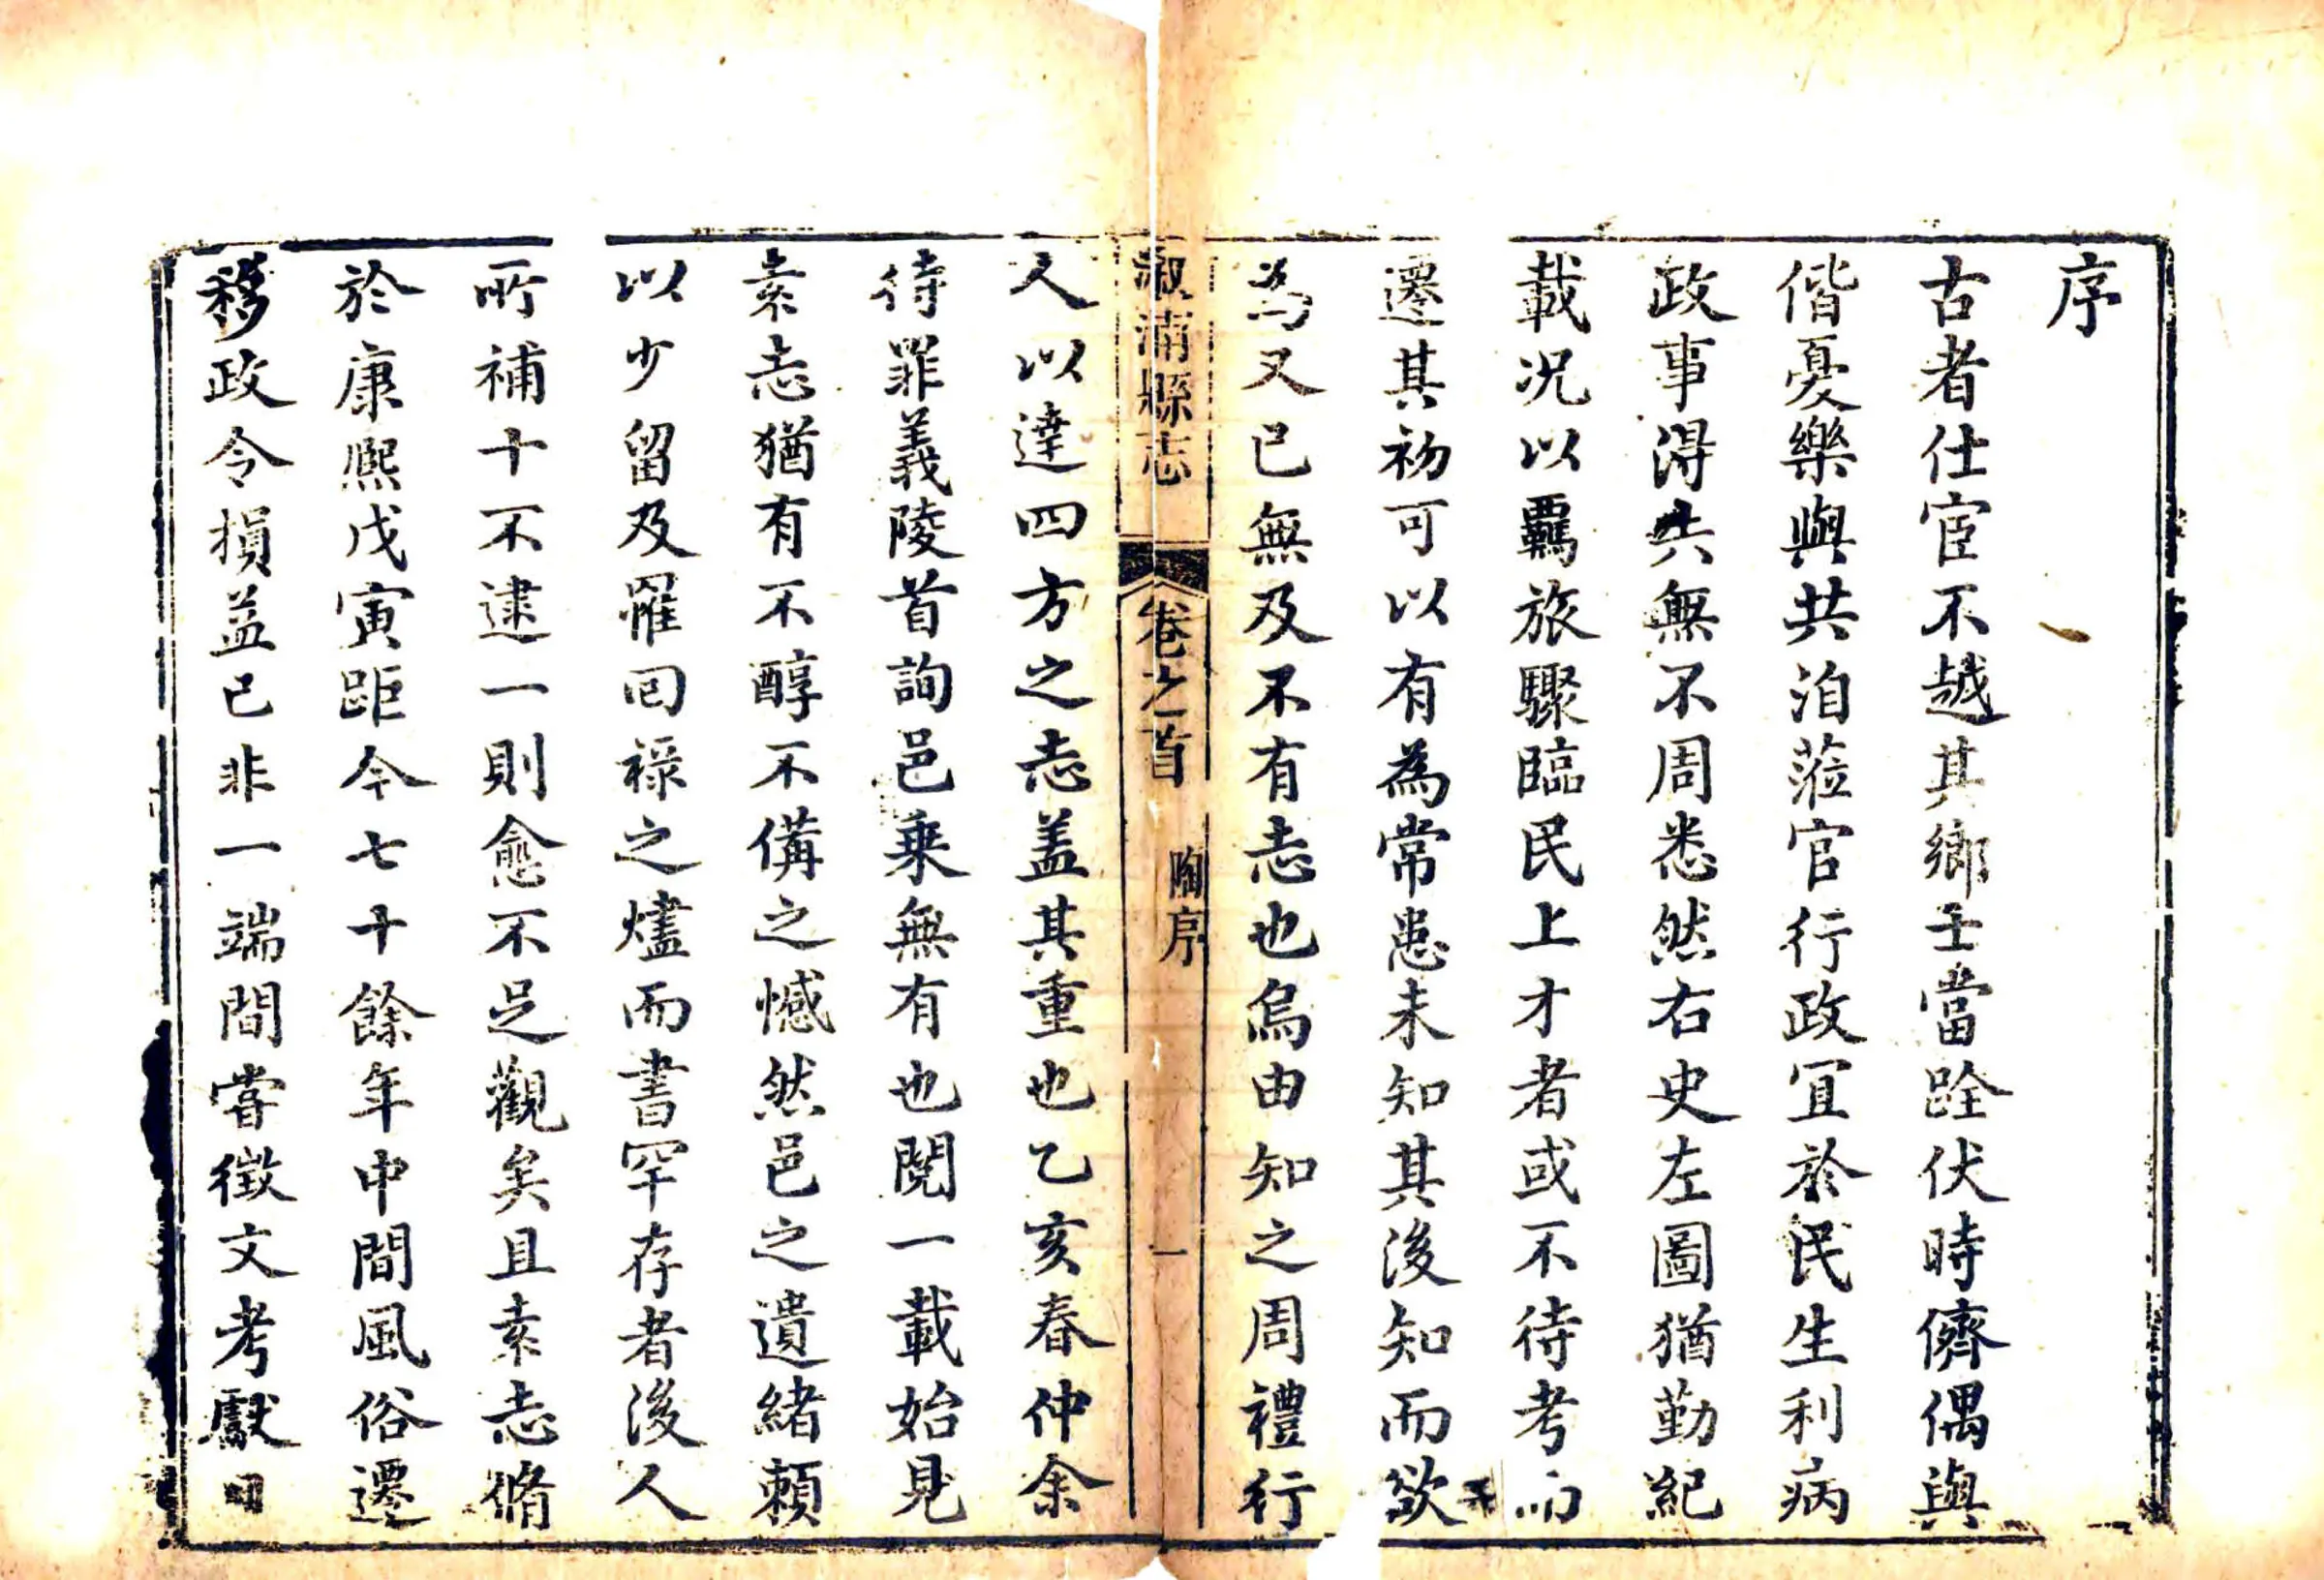 序
古者仕宦不越其鄉壬當跧伏時儕偶與
偕憂樂與共洎蒞官行政宜於民生利病
政事得失無不周悉然右史左圖猶勤紀
載况以覊旅驟臨民上才者或不待考而
遷其初可以有為常患未知其後知而欲
為又已無及不有志也烏由知之周禮行
溆浦縣志 卷之首 陶序 一
人以達四方之志盖其重也乙亥春仲余
待罪義陵首詢邑乗無有也閱一載始見
素志猶有不醇不備之憾然邑之遺緒賴
以少留及罹囘祿之燼而書罕存者後人
所補十不逮一則愈不足觀矣且素志脩
於康熙戊寅距今七十餘年中間風俗遷
移政令損益已非一端間嘗徵文考獻日